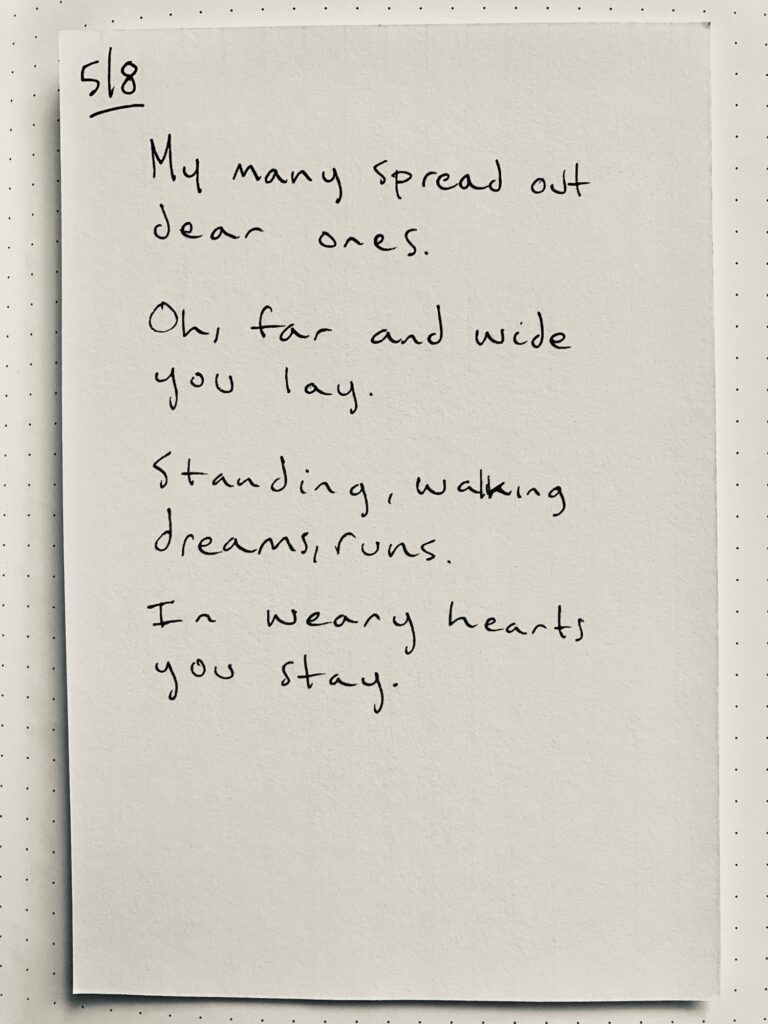 5/8
My many spread out
dear ones.
Oh, far and wide
you lay.
Standing, walking
dreams, runs.
In weary hearts
you stay.